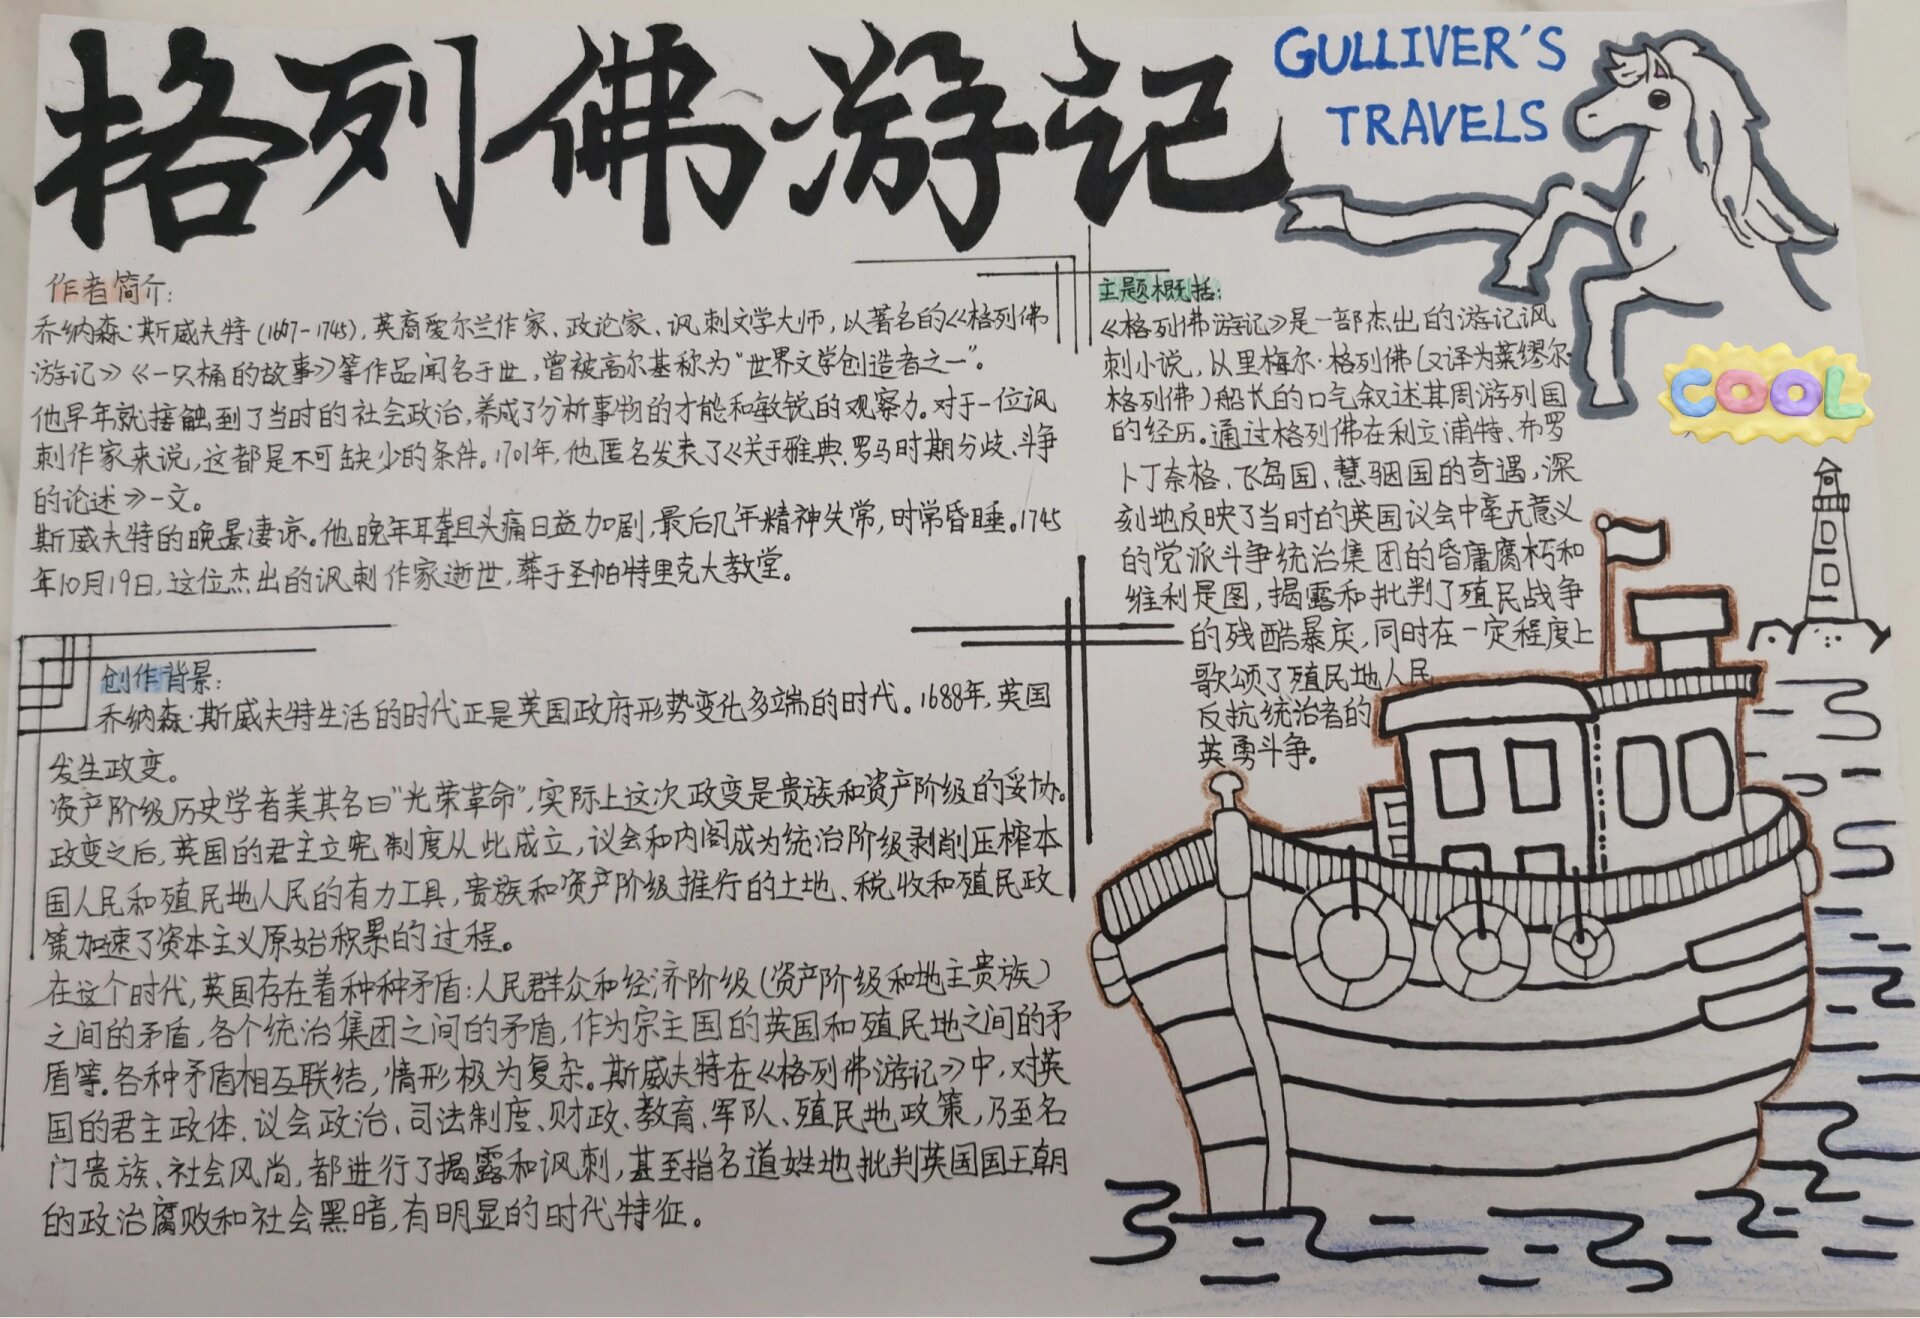 格列佛游记
GULLIVER'S
TRAVELS
作者简介：
乔纳森·斯威夫特(1667-1745)，英裔爱尔兰作家、政论家、讽刺文学大师，以著名的《格列佛
游记》《一只桶的故事》等作品闻名于世，曾被高尔基称为“世界文学创造者之一”。
他早年就接触到了当时的社会政治，养成了分析事物的才能和敏锐的观察力。对于一位讽
刺作家来说，这都是不可缺少的条件。1701年，他匿名发表了《关于雅典、罗马时期分歧、斗争
的论述》一文。
斯威夫特的晚景凄凉。他晚年耳聋且头痛日益加剧，最后几年精神失常，时常昏睡。1745
年10月19日，这位杰出的讽刺作家逝世，葬于圣帕特里克大教堂。
创作背景：
乔纳森·斯威夫特生活的时代正是英国政府形势变化多端的时代。1688年，英国
发生政变。
资产阶级历史学者美其名曰“光荣革命”，实际上这次政变是贵族和资产阶级的妥协。
政变之后，英国的君主立宪制度从此成立，议会和内阁成为统治阶级剥削压榨本
国人民和殖民地人民的有力工具，贵族和资产阶级推行的土地、税收和殖民政
策加速了资本主义原始积累的过程。
在这个时代，英国存在着种种矛盾：人民群众和经济阶级（资产阶级和地主贵族）
之间的矛盾，各个统治集团之间的矛盾，作为宗主国的英国和殖民地之间的矛
盾等。各种矛盾相互联结，情形极为复杂。斯威夫特在《格列佛游记》中，对英
国的君主政体、议会政治、司法制度、财政、教育、军队、殖民地政策，乃至名
门贵族、社会风尚，都进行了揭露和讽刺，甚至指名道姓地批判英国国王朝
的政治腐败和社会黑暗，有明显的时代特征。
主题概括：
《格列佛游记》是一部杰出的游记讽
刺小说，以里梅尔·格列佛（又译为莱缪尔·
格列佛）船长的口气叙述其周游列国
的经历。通过格列佛在利立浦特、布罗
卜丁奈格、飞岛国、慧骃国的奇遇，深
刻地反映了当时的英国议会中毫无意义
的党派斗争统治集团的昏庸腐朽和
维利是图，揭露和批判了殖民战争
的残酷暴戾，同时在一定程度上
歌颂了殖民地人民
反抗统治者的
英勇斗争。
COOL